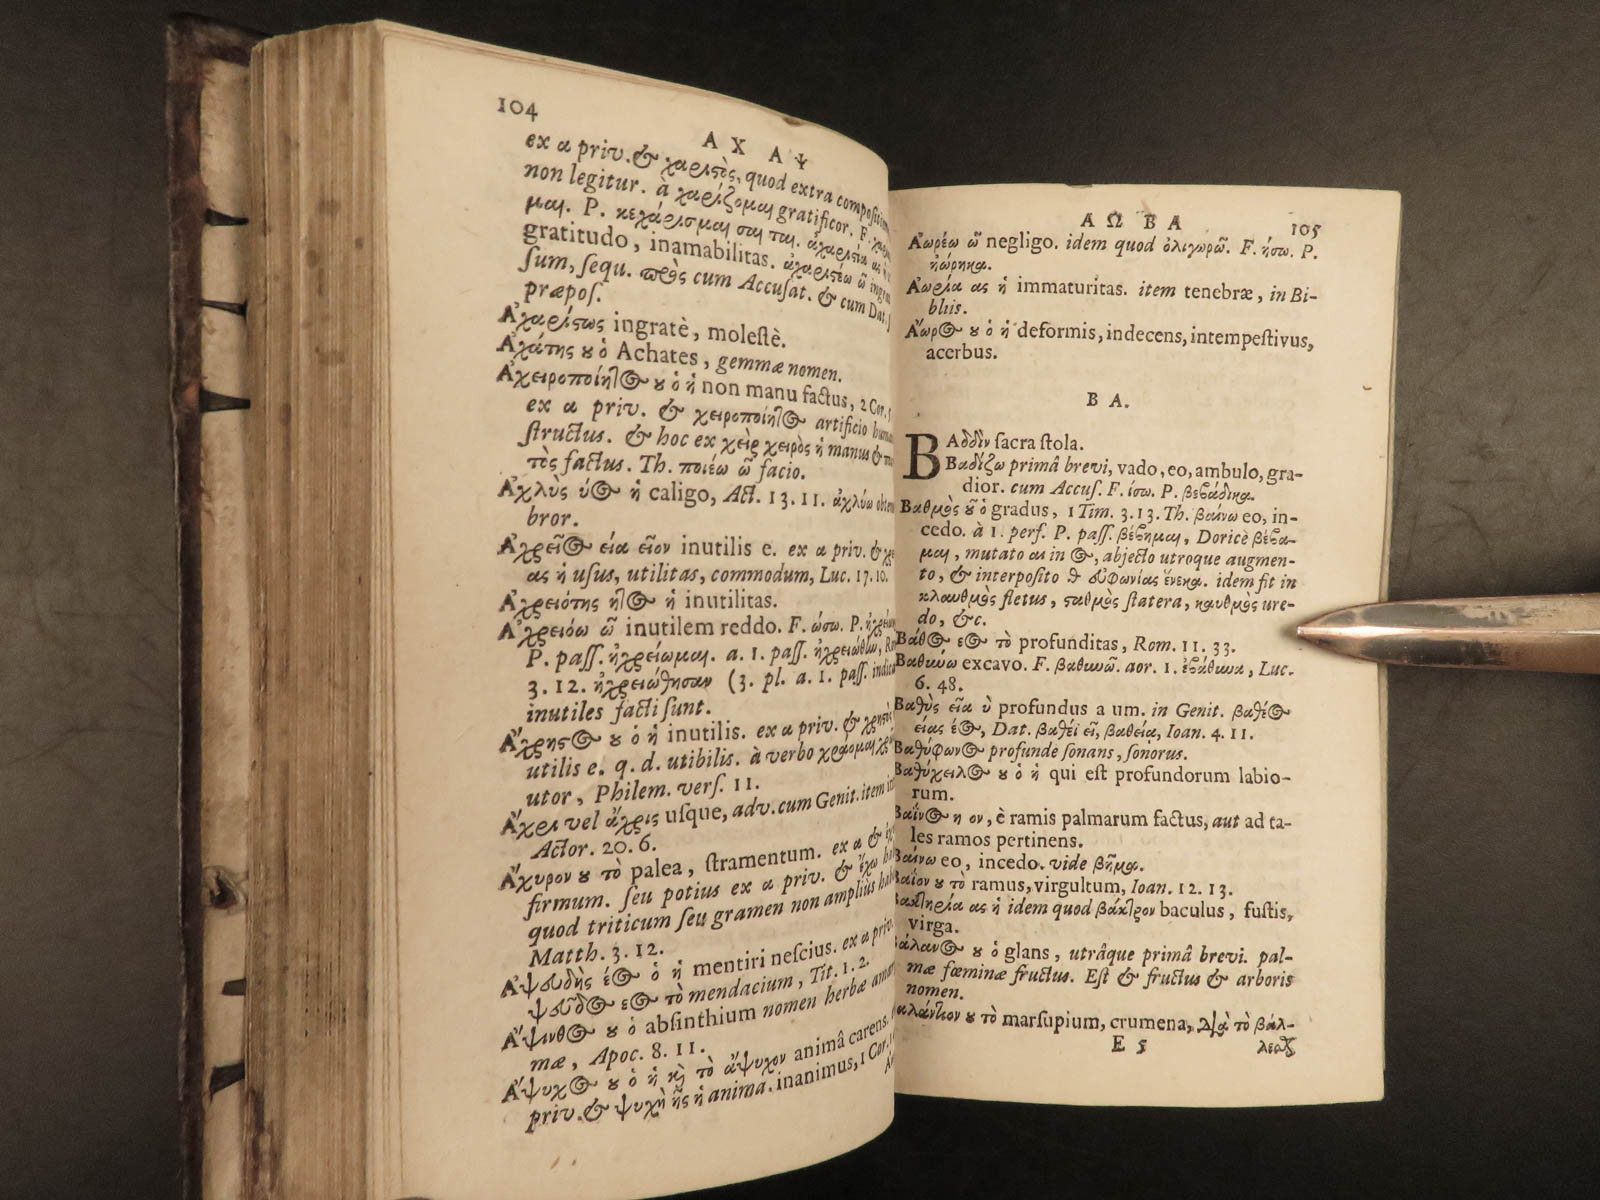 104
Α Χ Α Ψ
ex α priv. & χαριστὸς, quod extra compositionem
non legitur. à χαρίζομαι gratificor. F.
μαι. P. κεχάρισμαι σαι ται. ἀχαριστία ας ἡ
gratitudo, inamabilitas. ἀχαριστέω ῶ
ſum, ſequ. πρὸς cum Accuſat. & cum Dat.
præpoſ.
Ἀχαρίστως ingratè, moleſtè.
Ἀχάτης ȣ ὁ Achates, gemmæ nomen.
Ἀχειροποίητος ȣ ὁ ἡ non manu factus, 2 Cor. 5
ex α priv. & χειροποίητος artificio
ſtructus. & hoc ex χεὶρ χειρὸς ἡ manus &
τὸς factus. Th. ποιέω ῶ facio.
Ἀχλὺς ύος ἡ caligo, Act. 13. 11. ἀχλύω
bror.
Ἀχρεῖος εία εῖον inutilis e. ex α priv. &
ας ἡ uſus, utilitas, commodum, Luc. 17. 10.
Ἀχρειότης ητος ἡ inutilitas.
Ἀχρειόω ῶ inutilem reddo. F. ώσω. P.
P. paſſ. ἠχρείωμαι. a. 1. paſſ. ἠχρειώθην,
3. 12. ἠχρειώθησαν (3. pl. a. 1. paſſ.
inutiles facti ſunt.
Ἄχρηστος ȣ ὁ ἡ inutilis. ex α priv. & χρηστὸς
utilis e. q. d. utibilis. à verbo χράομαι
utor, Philem. verſ. 11.
Ἄχρι vel ἄχρις uſque, adv. cum Genit. item
Actor. 20. 6.
Ἄχυρον ȣ τὸ palea, ſtramentum. ex α &
firmum. ſeu potius ex α priv. & ἔχω
quod triticum ſeu gramen non ampliùs
Matth. 3. 12.
Ἀψευδὴς έος ὁ ἡ mentiri neſcius. ex α priv.
ψεῦδος εος τὸ mendacium, Tit. 1. 2.
Ἄψινθος ȣ ὁ abſinthium nomen herbæ
mæ, Apoc. 8. 11.
Ἄψυχος ȣ ὁ ἡ κὶ τὸ ἄψυχον animâ carens.
priv. & ψυχὴ ῆς ἡ anima. inanimus, 1 Cor.
Α Ω Β Α
105
Ἀωρέω ῶ negligo. idem quod ὀλιγωρῶ. F. ήσω. P.
ἠώρηκα.
Ἀωρία ας ἡ immaturitas. item tenebræ, in Bi-
bliis.
Ἄωρος ȣ ὁ ἡ deformis, indecens, intempeſtivus,
acerbus.
Β Α.
ΒΑδδὶν ſacra ſtola.
Βαδίζω primâ brevi, vado, eo, ambulo, gra-
dior. cum Accuſ. F. ίσω. P. βεβάδικα.
Βαθμὸς ȣ͂ ὁ gradus, 1 Tim. 3. 13. Th. βαίνω eo, in-
cedo. à 1. perſ. P. paſſ. βέβημαι, Doricè βέβα-
μαι, mutato αι in ος, abjecto utroque augmen-
to, & interpoſito θ εὐφωνίας ἕνεκα. idem fit in
κλαυθμὸς fletus, σταθμὸς ſtatera, καυθμὸς ure-
do, &c.
Βάθος εος τὸ profunditas, Rom. 11. 33.
Βαθύνω excavo. F. βαθυνῶ. aor. 1. ἐβάθυνα, Luc.
6. 48.
Βαθὺς εῖα ὺ profundus a um. in Genit. βαθέος
είας έος, Dat. βαθέϊ εῖ, βαθείᾳ, Ioan. 4. 11.
Βαθύφωνος profunde ſonans, ſonorus.
Βαθύχειλος ȣ ὁ ἡ qui eſt profundorum labio-
rum.
Βαΐνος η ον, è ramis palmarum factus, aut ad ta-
les ramos pertinens.
Βαίνω eo, incedo. vide βῆμα.
Βαΐον ȣ τὸ ramus, virgultum, Ioan. 12. 13.
Βακτηρία ας ἡ idem quod βάκτρον baculus, fuſtis,
virga.
Βάλανος ȣ ὁ glans, utrâque primâ brevi. pal-
mæ fœminæ fructus. Eſt & fructus & arboris
nomen.
Βαλάντιον ȣ τὸ marſupium, crumena, Διὰ τὸ βάλ-
E 5
λεσθ